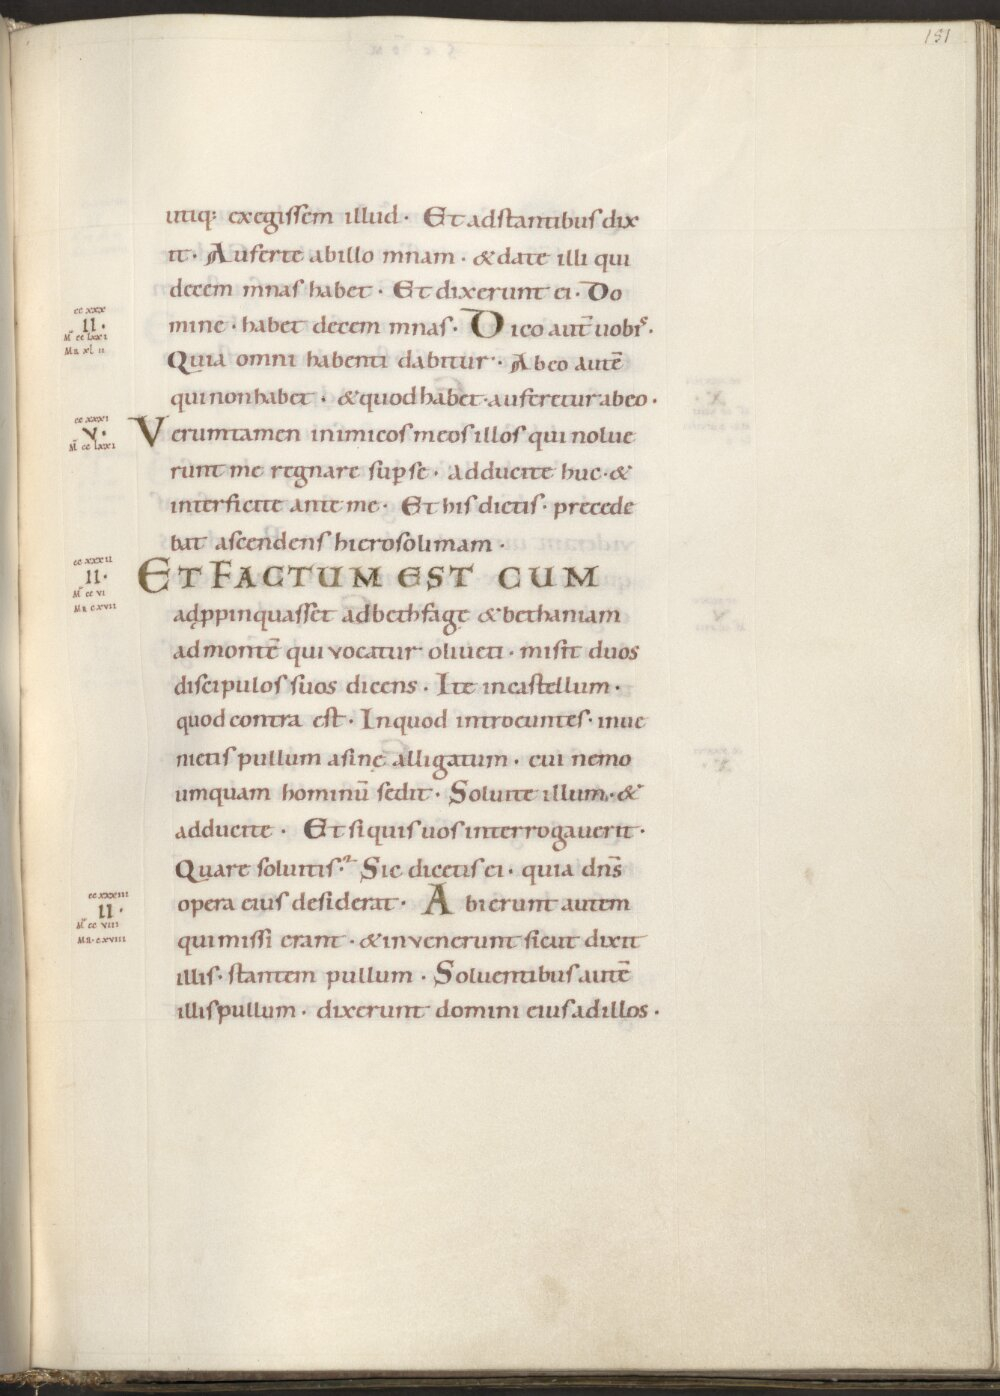 181
utiq; exegissem illud · Et adstantibus dix
it · Auferte abillo mnam · & date illi qui
decem mnas habet · Et dixerunt ei · Do
cc xxx
II ·
M̄ cc lxxi
Mr xl ii
mine · habet decem mnas · Dico aut̄ uobis ·
Quia omni habenti dabitur · Abeo autē
qui non habet · & quod habet · auferetur abeo ·
cc xxxi
V ·
M̄ cc lxxi
Verumtamen inimicos meos illos qui nolue
runt me regnare sup̱ se · adducite huc · &
interficite ante me · Et his dictis · precede
bat ascendens hierosolimam ·
cc xxxii
II ·
M̄ cc vi
Mr cxvii
ET FACTUM EST CUM
adp̱pinquasset ad bethfagę & bethaniam
ad montē qui vocatur oliueti · misit duos
discipulos suos dicens · Ite in castellum ·
quod contra est · In quod introeuntes · inue
nietis pullum asinę alligatum · cui nemo
umquam hominū sedit · Soluite illum · &
adducite · Et si quis uos interrogaverit ·
Quare soluitis? Sic dicetis ei · quia dn̄s
cc xxxiii
II ·
M̄ cc viii
Mr · cxviii
opera eius desiderat · Abierunt autem
qui missi erant · & invenerunt sicut dixit
illis · stantem pullum · Soluentibus autē
illis pullum · dixerunt domini eius ad illos ·